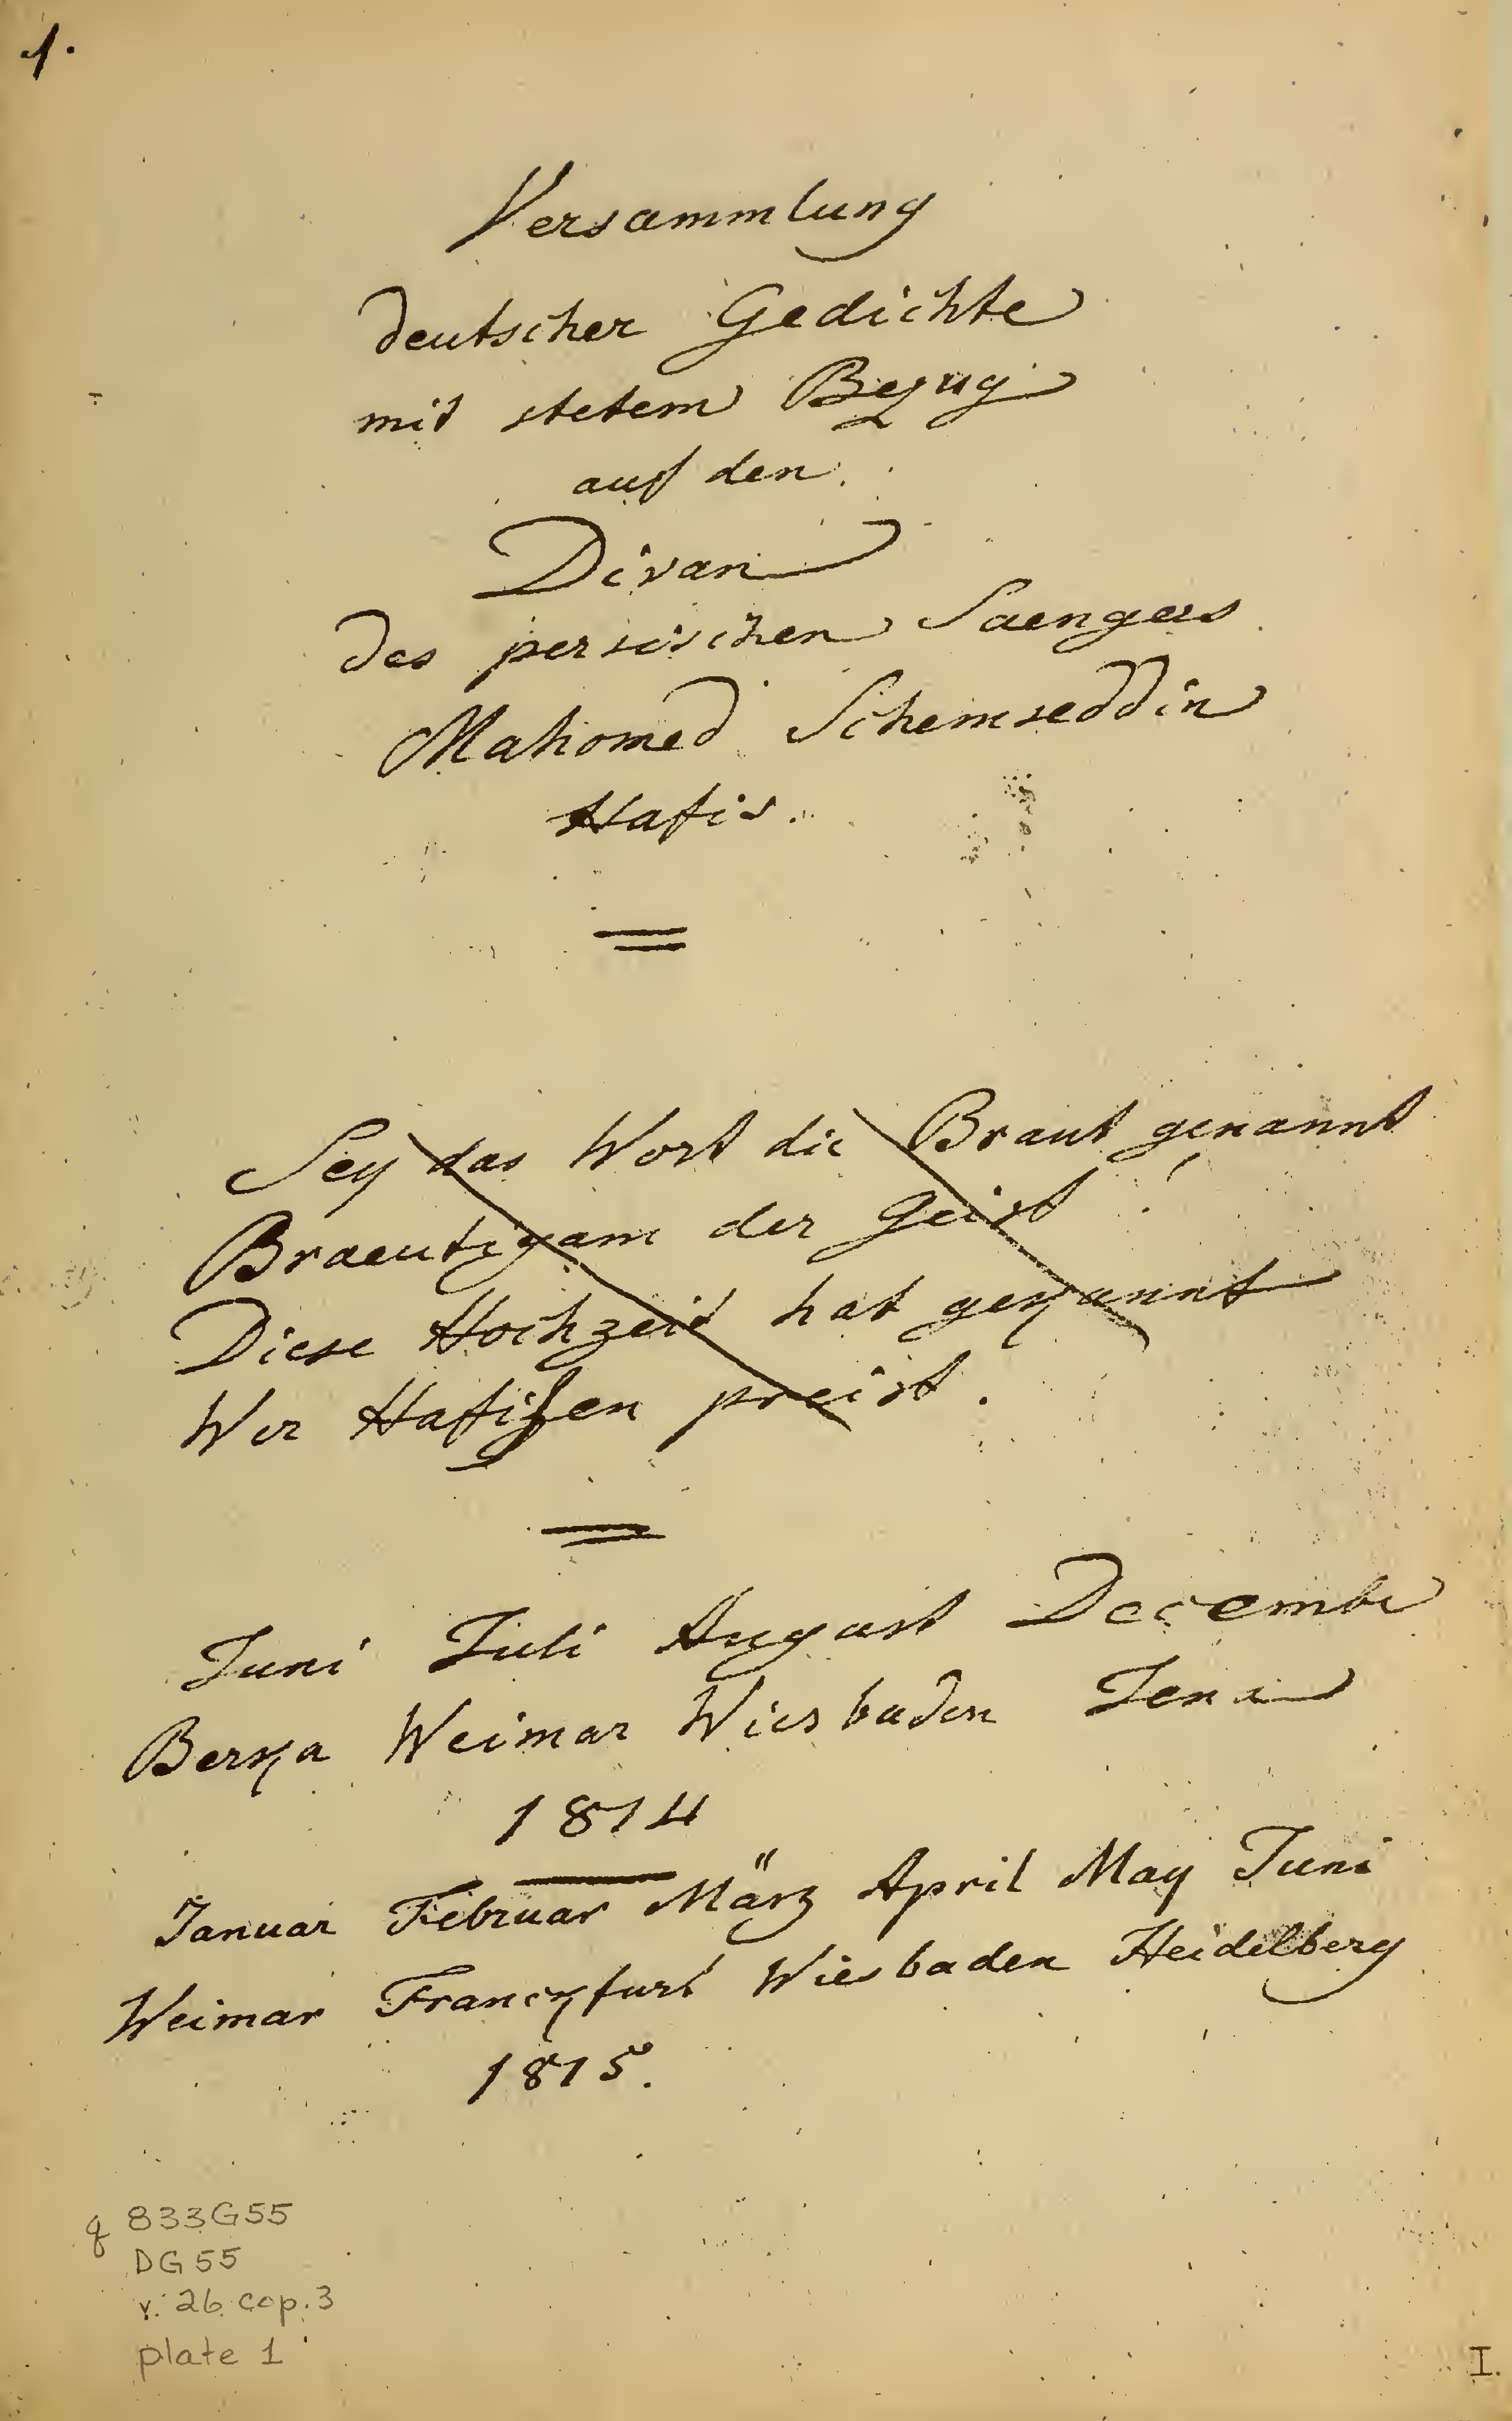 1.
Versammlung
deutscher Gedichte
mit stetem Bezug
auf den
Divan
des persischen Saengers
Mahomed Schemseddin
Hafis.
Sey das Wort die Braut genannt
Braeutigam der Geist!
Diese Hochzeit hat gekannt
Wer Hafisen preist.
Juni Juli August December
Berka Weimar Wiesbaden Jena
1814
Januar Februar März April May Juni
Weimar Franckfurt Wiesbaden Heidelberg
1815.
q 833G55
DG55
v. 26 cop. 3
plate 1
I.